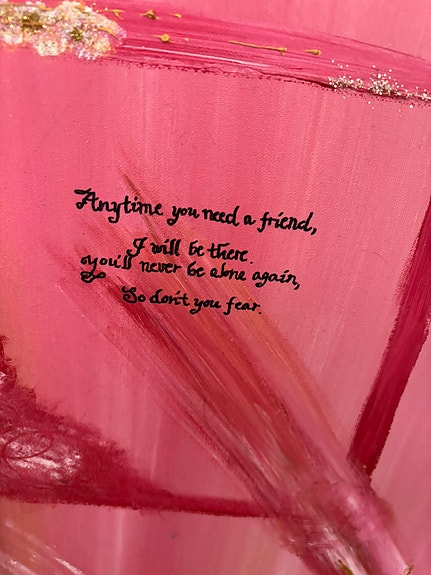 Anytime you need a friend,
I will be there.
You'll never be alone again,
So don't you fear.